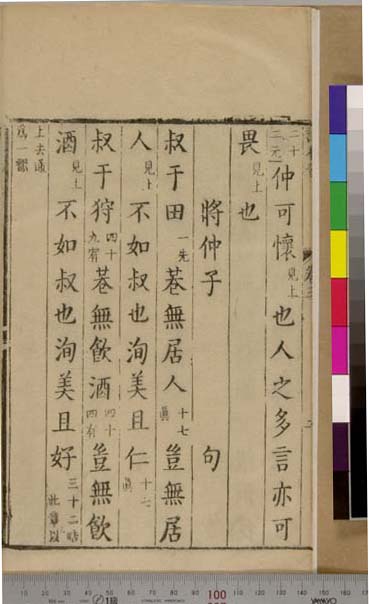 二十二元仲可懷見上也人之多言亦可
畏見上也
將仲子 句
叔于田一先巷無居人十七眞豈無居
人見上不如叔也洵美且仁十七眞
叔于狩四十九宥巷無飲酒四十四有豈無飲
酒見上不如叔也洵美且好三十二晧此章以
上去通爲一韻
卷三
10 20 30 40 50 60 70 80 90 100 110 120 130 140 150 160